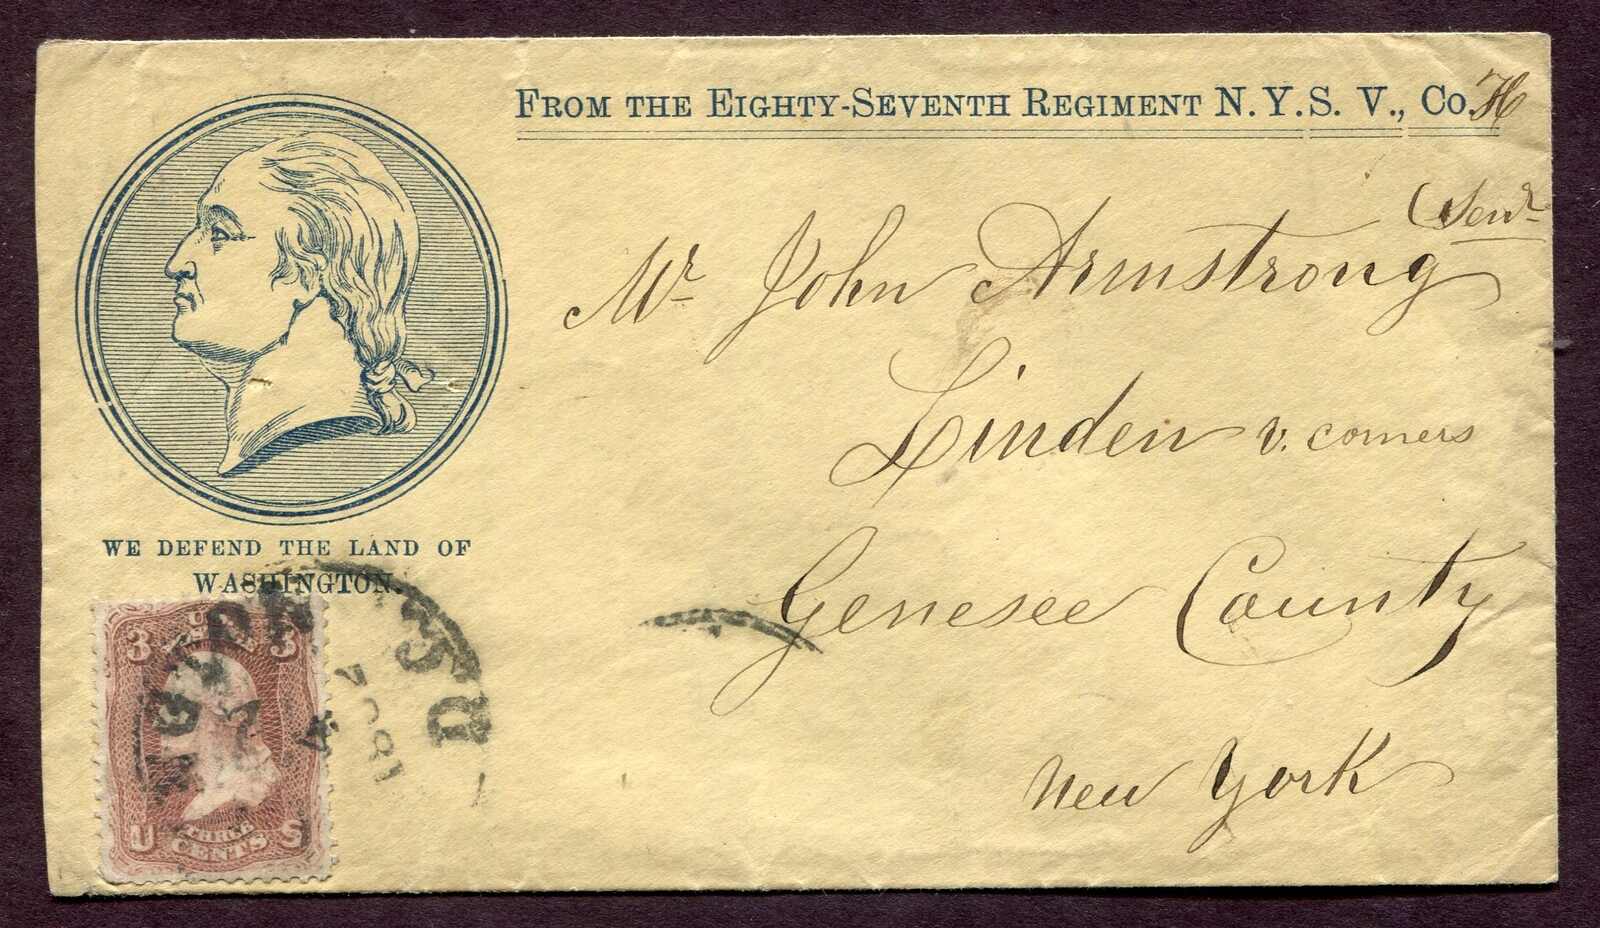 FROM THE EIGHTY-SEVENTH REGIMENT N. Y. S. V., Co. H
(Senr
Mr John Armstrong
Linden v. corners
Genesee County
New York
WE DEFEND THE LAND OF
WASHINGTON.
3 3
U S
THREE
CENTS
186